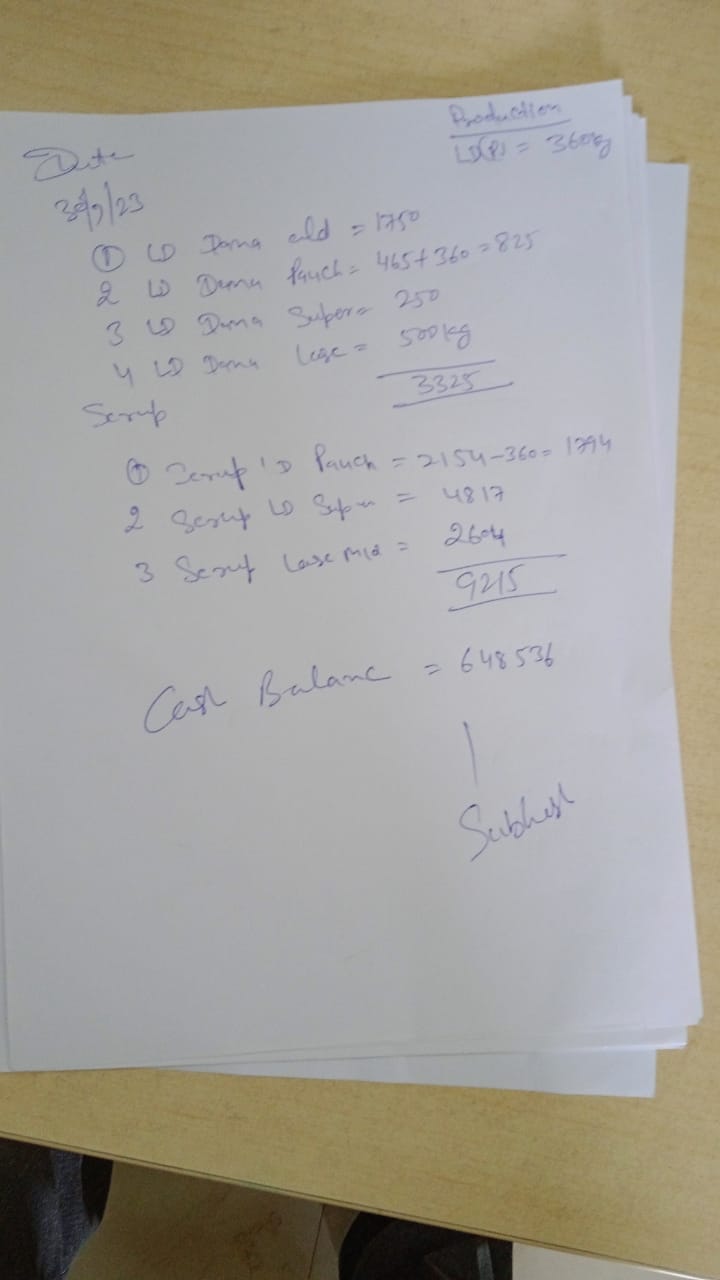 Production
LD(P) = 360kg
Date
30/9/23
① LD Dana old = 1750
2 LD Dana Pauch = 465+360 = 825
3 LD Dana Super = 250
4 LD Dana = 500kg
3325
Scrap
① Scrap LD Pauch = 2154-360= 1794
2 Scrap LD Super = 4817
3 Scrap = 2604
9215
Cash Balanc = 648536
Subhash